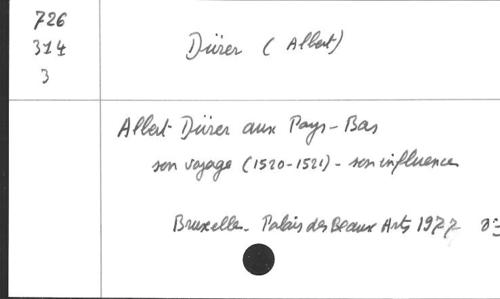 726
314
3
Dürer (Albert)
Albert Dürer aux Pays-Bas
son voyage (1520-1521) - son influence
Bruxelles. Palais des Beaux Arts 1977 8°